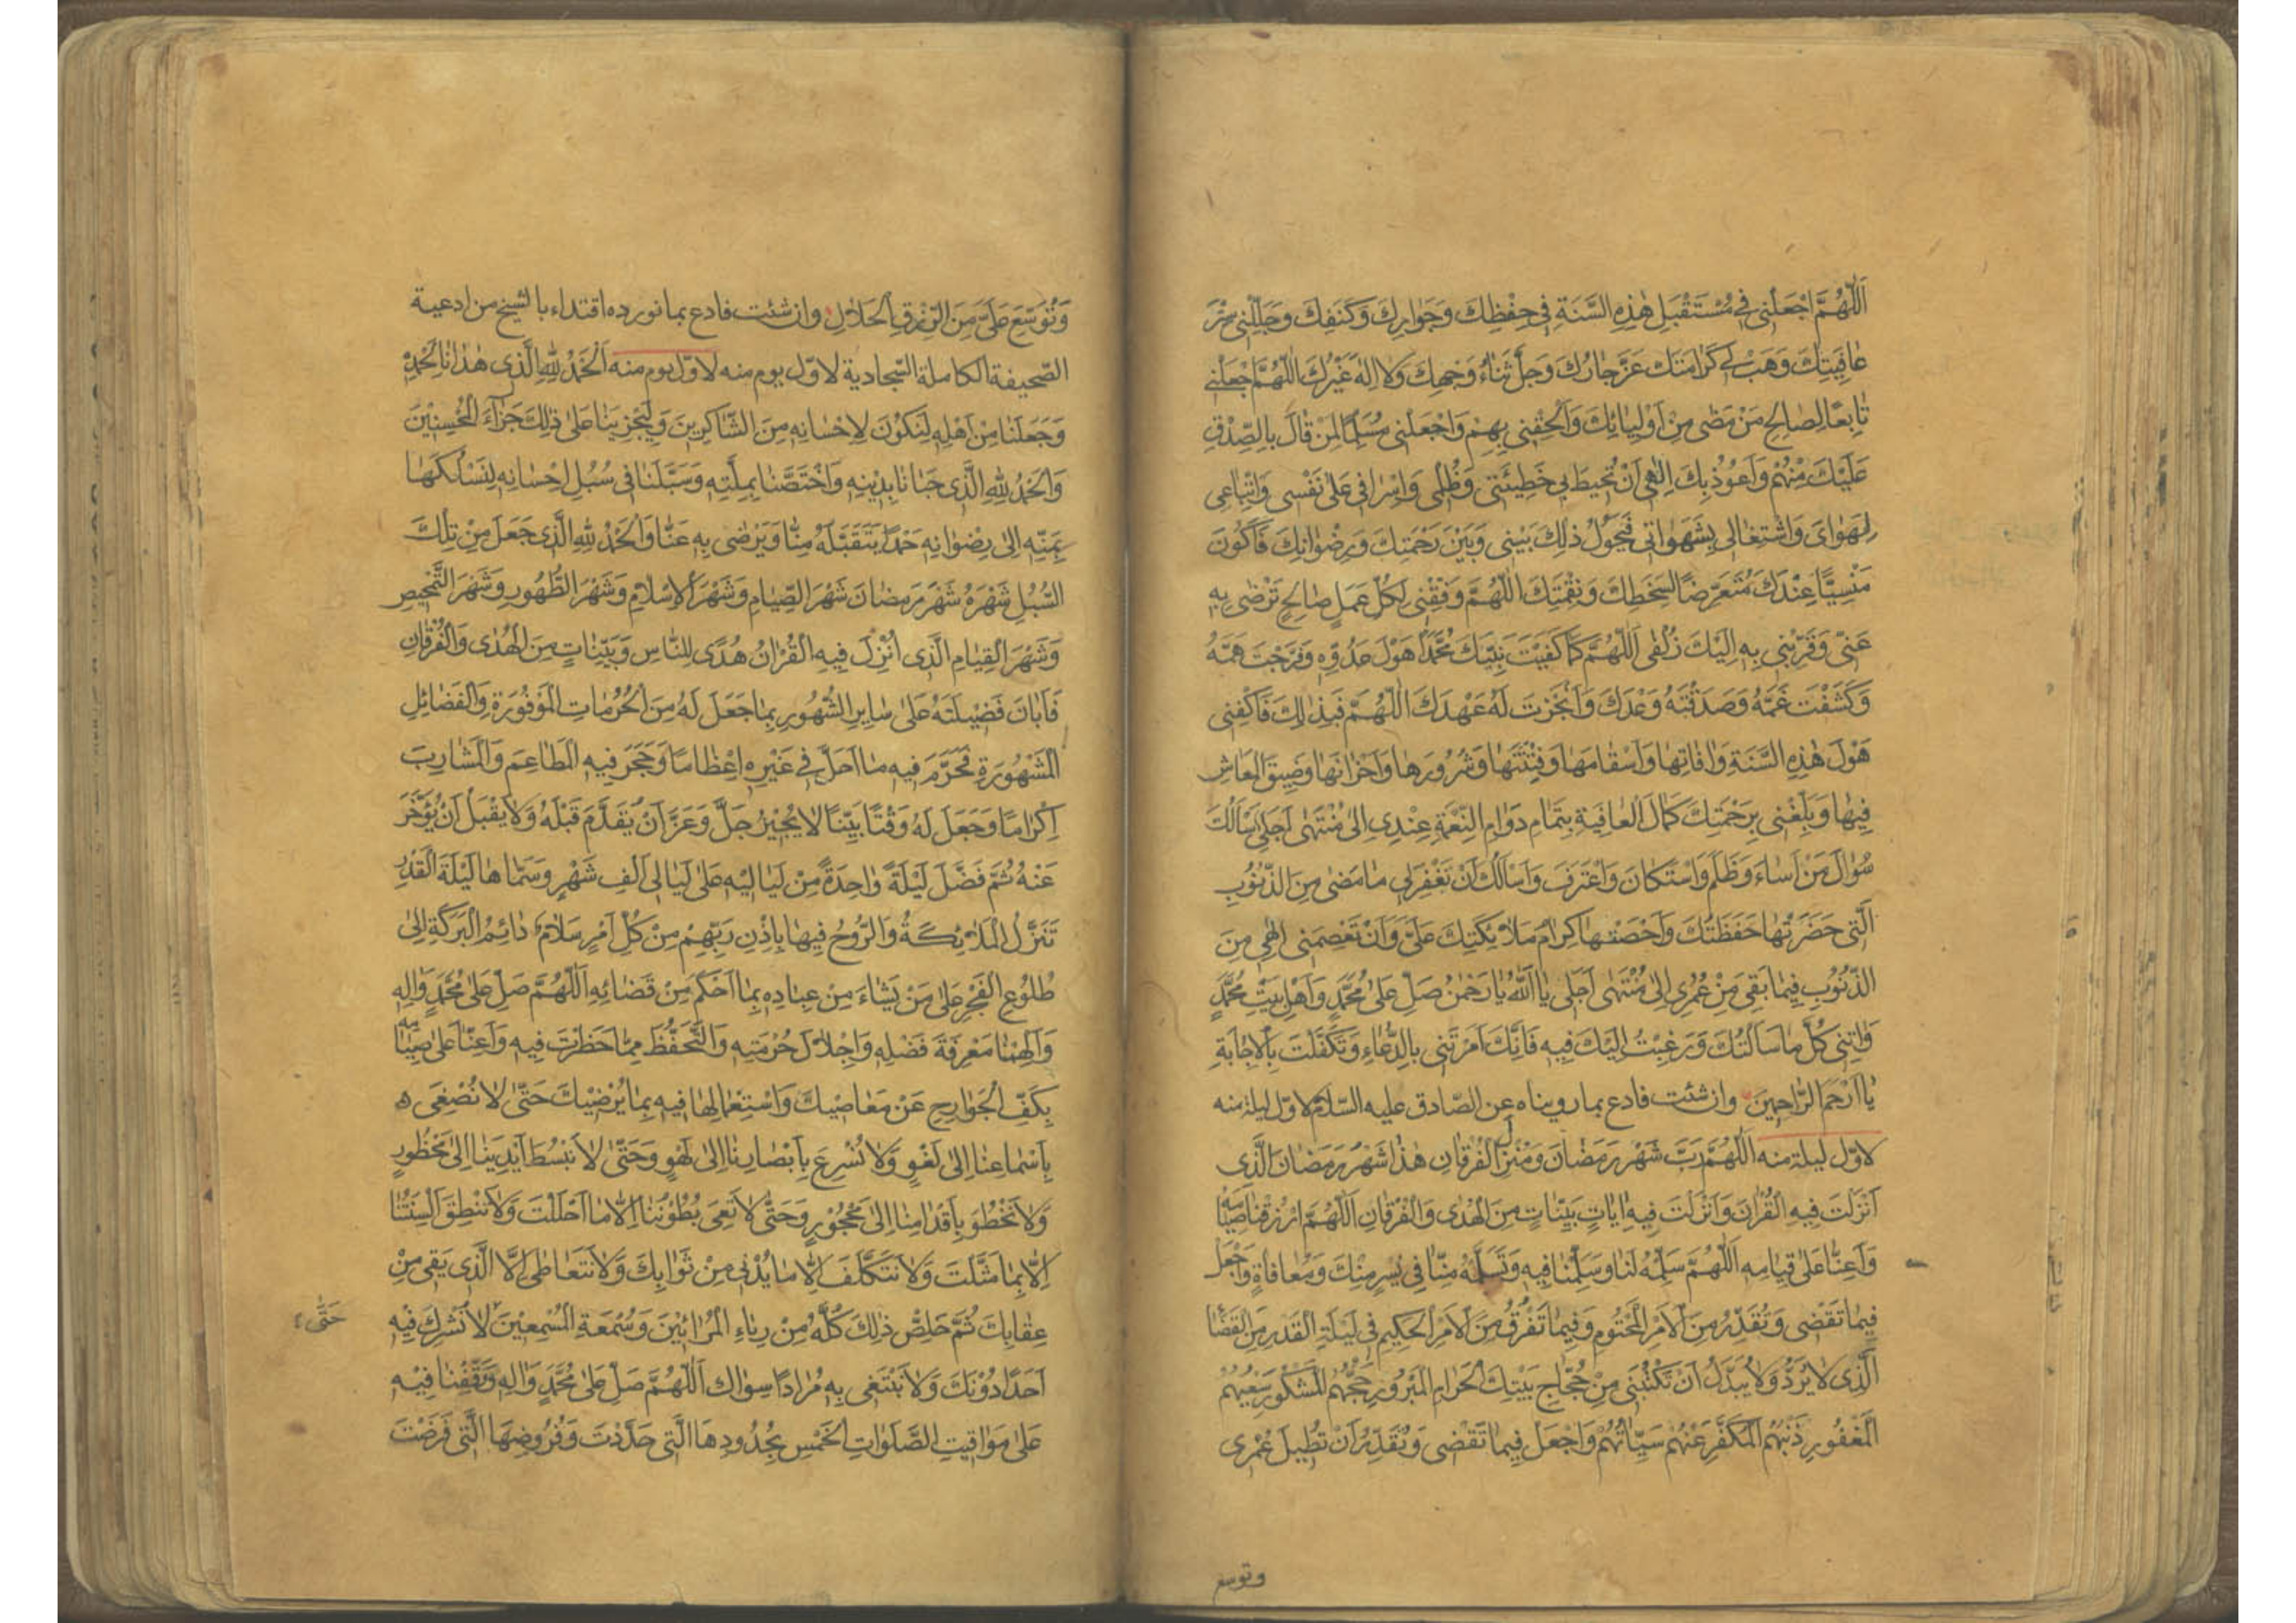 اَللّٰهُمَّ اجْعَلْنِى فِى مُسْتَقْبَلِ هٰذِهِ السَّنَةِ فِى حِفْظِكَ وَجَوَارِكَ وَكَنَفِكَ وَجَلِّلْنِى سِتْرَ
عَافِيَتِكَ وَهَبْ لِى كَرَامَتَكَ عَزَّ جَارُكَ وَجَلَّ ثَنَاءُ وَجْهِكَ وَلَا اِلٰهَ غَيْرُكَ اَللّٰهُمَّ اجْعَلْنِى
تَابِعًا لِصَالِحِ مَنْ مَضٰى مِنْ اَوْلِيَائِكَ وَاَلْحِقْنِى بِهِمْ وَاجْعَلْنِى مُسَلِّمًا لِمَنْ قَالَ بِالصِّدْقِ
عَلَيْكَ مِنْهُمْ وَاَعُوذُ بِكَ اِلٰهِى اَنْ تُحِيطَ بِى خَطِيئَتِى وَظُلْمِى وَاِسْرَافِى عَلٰى نَفْسِى وَاتِّبَاعِى
لِهَوَاىَ وَاشْتِغَالِى بِشَهَوَاتِى فَيَحُولُ ذٰلِكَ بَيْنِى وَبَيْنَ رَحْمَتِكَ وَرِضْوَانِكَ فَاَكُونَ
مَنْسِيًّا عِنْدَكَ مُتَعَرِّضًا لِسَخَطِكَ وَنِقْمَتِكَ اَللّٰهُمَّ وَفِّقْنِى لِكُلِّ عَمَلٍ صَالِحٍ تَرْضٰى بِهِ
عَنِّى وَقَرِّبْنِى بِهِ اِلَيْكَ زُلْفٰى اَللّٰهُمَّ كَمَا كَفَيْتَ نَبِيَّكَ مُحَمَّدًا هَوْلَ عَدُوِّهِ وَفَرَّجْتَ هَمَّهُ
وَكَشَفْتَ غَمَّهُ وَصَدَقْتَهُ وَعْدَكَ وَاَنْجَزْتَ لَهُ عَهْدَكَ اَللّٰهُمَّ فَبِذٰلِكَ فَاكْفِنِى
هَوْلَ هٰذِهِ السَّنَةِ وَاٰفَاتِهَا وَاَسْقَامَهَا وَفِتْنَتَهَا وَشُرُورَهَا وَاَحْزَانَهَا وَضِيقَ الْمَعَاشِ
فِيهَا وَبَلِّغْنِى بِرَحْمَتِكَ كَمَالَ الْعَافِيَةِ بِتَمَامِ دَوَامِ النِّعْمَةِ عِنْدِى اِلٰى مُنْتَهٰى اَجَلِى اَسْاَلُكَ
سُؤَالَ مَنْ اَسَاءَ وَظَلَمَ وَاسْتَكَانَ وَاعْتَرَفَ وَاَسْاَلُكَ اَنْ تَغْفِرَ لِى مَا مَضٰى مِنَ الذُّنُوبِ
الَّتِى حَضَرَتْهَا حَفَظَتُكَ وَاَحْصَتْهَا كِرَامُ مَلَائِكَتِكَ عَلَىَّ وَاَنْ تَعْصِمَنِى اِلٰهِى مِنَ
الذُّنُوبِ فِيمَا بَقِىَ مِنْ عُمُرِى اِلٰى مُنْتَهٰى اَجَلِى يَا اَللّٰهُ يَا رَحْمٰنُ صَلِّ عَلٰى مُحَمَّدٍ وَاَهْلِ بَيْتِ مُحَمَّدٍ
وَاٰتِنِى كُلَّ مَا سَاَلْتُكَ وَرَغِبْتُ اِلَيْكَ فِيهِ فَاِنَّكَ اَمَرْتَنِى بِالدُّعَاءِ وَتَكَفَّلْتَ بِالْاِجَابَةِ
يَا اَرْحَمَ الرَّاحِمِينَ وان شئت فادع بما رويناه عن الصادق عليه السلام لاول ليلة منه
لاول ليلة منه اَللّٰهُمَّ رَبَّ شَهْرِ رَمَضَانَ وَمُنْزِلَ الْفُرْقَانِ هٰذَا شَهْرُ رَمَضَانَ الَّذِى
اَنْزَلْتَ فِيهِ الْقُرْاٰنَ وَاَنْزَلْتَ فِيهِ اٰيَاتٍ بَيِّنَاتٍ مِنَ الْهُدٰى وَالْفُرْقَانِ اَللّٰهُمَّ ارْزُقْنَا صِيَامَهُ
وَاَعِنَّا عَلٰى قِيَامِهِ اَللّٰهُمَّ سَلِّمْهُ لَنَا وَسَلِّمْنَا فِيهِ وَتَسَلَّمْهُ مِنَّا فِى يُسْرٍ مِنْكَ وَمُعَافَاةٍ وَاجْعَلْ
فِيمَا تَقْضِى وَتُقَدِّرُ مِنَ الْاَمْرِ الْمَحْتُومِ وَفِيمَا تَفْرُقُ مِنَ الْاَمْرِ الْحَكِيمِ فِى لَيْلَةِ الْقَدْرِ مِنَ الْقَضَاءِ
الَّذِى لَا يُرَدُّ وَلَا يُبَدَّلُ اَنْ تَكْتُبَنِى مِنْ حُجَّاجِ بَيْتِكَ الْحَرَامِ الْمَبْرُورِ حَجُّهُمُ الْمَشْكُورِ سَعْيُهُمْ
الْمَغْفُورِ ذَنْبُهُمُ الْمُكَفَّرِ عَنْهُمْ سَيِّئَاتُهُمْ وَاجْعَلْ فِيمَا تَقْضِى وَتُقَدِّرُ اَنْ تُطِيلَ عُمْرِى
وتوسع
وَتُوَسِّعَ عَلَىَّ مِنَ الرِّزْقِ الْحَلَالِ وان شئت فادع بما نورده اقتداء بالشيخ من ادعية
الصحيفة الكاملة السجادية لاول يوم منه لاول يوم منه اَلْحَمْدُ لِلّٰهِ الَّذِى هَدَانَا لِحَمْدِهِ
وَجَعَلَنَا مِنْ اَهْلِهِ لِنَكُونَ لِاِحْسَانِهِ مِنَ الشَّاكِرِينَ وَلِيَجْزِيَنَا عَلٰى ذٰلِكَ جَزَاءَ الْمُحْسِنِينَ
وَالْحَمْدُ لِلّٰهِ الَّذِى حَبَانَا بِدِينِهِ وَاخْتَصَّنَا بِمِلَّتِهِ وَسَبَّلَنَا فِى سُبُلِ اِحْسَانِهِ لِنَسْلُكَهَا
بِمَنِّهِ اِلٰى رِضْوَانِهِ حَمْدًا يَتَقَبَّلُهُ مِنَّا وَيَرْضٰى بِهِ عَنَّا وَالْحَمْدُ لِلّٰهِ الَّذِى جَعَلَ مِنْ تِلْكَ
السُّبُلِ شَهْرَهُ شَهْرَ رَمَضَانَ شَهْرَ الصِّيَامِ وَشَهْرَ الْاِسْلَامِ وَشَهْرَ الطَّهُورِ وَشَهْرَ التَّمْحِيصِ
وَشَهْرَ الْقِيَامِ الَّذِى اُنْزِلَ فِيهِ الْقُرْاٰنُ هُدًى لِلنَّاسِ وَبَيِّنَاتٍ مِنَ الْهُدٰى وَالْفُرْقَانِ
فَاَبَانَ فَضِيلَتَهُ عَلٰى سَايِرِ الشُّهُورِ بِمَا جَعَلَ لَهُ مِنَ الْحُرُمَاتِ الْمَوْفُورَةِ وَالْفَضَائِلِ
الْمَشْهُورَةِ فَحَرَّمَ فِيهِ مَا اَحَلَّ فِى غَيْرِهِ اِعْظَامًا وَحَجَرَ فِيهِ الْمَطَاعِمَ وَالْمَشَارِبَ
اِكْرَامًا وَجَعَلَ لَهُ وَقْتًا بَيِّنًا لَا يُجِيزُ جَلَّ وَعَزَّ اَنْ يُقَدَّمَ قَبْلَهُ وَلَا يَقْبَلُ اَنْ يُؤَخَّرَ
عَنْهُ ثُمَّ فَضَّلَ لَيْلَةً وَاحِدَةً مِنْ لَيَالِيهِ عَلٰى لَيَالِى اَلْفِ شَهْرٍ وَسَمَّاهَا لَيْلَةَ الْقَدْرِ
تَنَزَّلُ الْمَلَائِكَةُ وَالرُّوحُ فِيهَا بِاِذْنِ رَبِّهِمْ مِنْ كُلِّ اَمْرٍ سَلَامٌ دَائِمُ الْبَرَكَةِ اِلٰى
طُلُوعِ الْفَجْرِ عَلٰى مَنْ يَشَاءُ مِنْ عِبَادِهِ بِمَا اَحْكَمَ مِنْ قَضَائِهِ اَللّٰهُمَّ صَلِّ عَلٰى مُحَمَّدٍ وَاٰلِهِ
وَاَلْهِمْنَا مَعْرِفَةَ فَضْلِهِ وَاِجْلَالَ حُرْمَتِهِ وَالتَّحَفُّظَ مِمَّا حَظَرْتَ فِيهِ وَاَعِنَّا عَلٰى صِيَامِهِ
بِكَفِّ الْجَوَارِحِ عَنْ مَعَاصِيكَ وَاسْتِعْمَالِهَا فِيهِ بِمَا يُرْضِيكَ حَتّٰى لَا نُصْغِىَ ه
بِاَسْمَاعِنَا اِلٰى لَغْوٍ وَلَا نُسْرِعَ بِاَبْصَارِنَا اِلٰى لَهْوٍ وَحَتّٰى لَا نَبْسُطَ اَيْدِيَنَا اِلٰى مَحْظُورٍ
وَلَا نَخْطُوَ بِاَقْدَامِنَا اِلٰى مَحْجُورٍ وَحَتّٰى لَا تَعِىَ بُطُونُنَا اِلَّا مَا اَحْلَلْتَ وَلَا تَنْطِقَ اَلْسِنَتُنَا
اِلَّا بِمَا مَثَّلْتَ وَلَا نَتَكَلَّفَ اِلَّا مَا يُدْنِى مِنْ ثَوَابِكَ وَلَا نَتَعَاطٰى اِلَّا الَّذِى يَقِى مِنْ
عِقَابِكَ ثُمَّ خَلِّصْ ذٰلِكَ كُلَّهُ مِنْ رِيَاءِ الْمُرَائِينَ وَسُمْعَةِ الْمُسْمِعِينَ لَا نُشْرِكُ فِيهِ
حَتّٰى
اَحَدًا دُونَكَ وَلَا نَبْتَغِى بِهِ مُرَادًا سِوَاكَ اَللّٰهُمَّ صَلِّ عَلٰى مُحَمَّدٍ وَاٰلِهِ وَقِفْنَا فِيهِ
عَلٰى مَوَاقِيتِ الصَّلَوَاتِ الْخَمْسِ بِحُدُودِهَا الَّتِى حَدَّدْتَ وَفُرُوضِهَا الَّتِى فَرَضْتَ